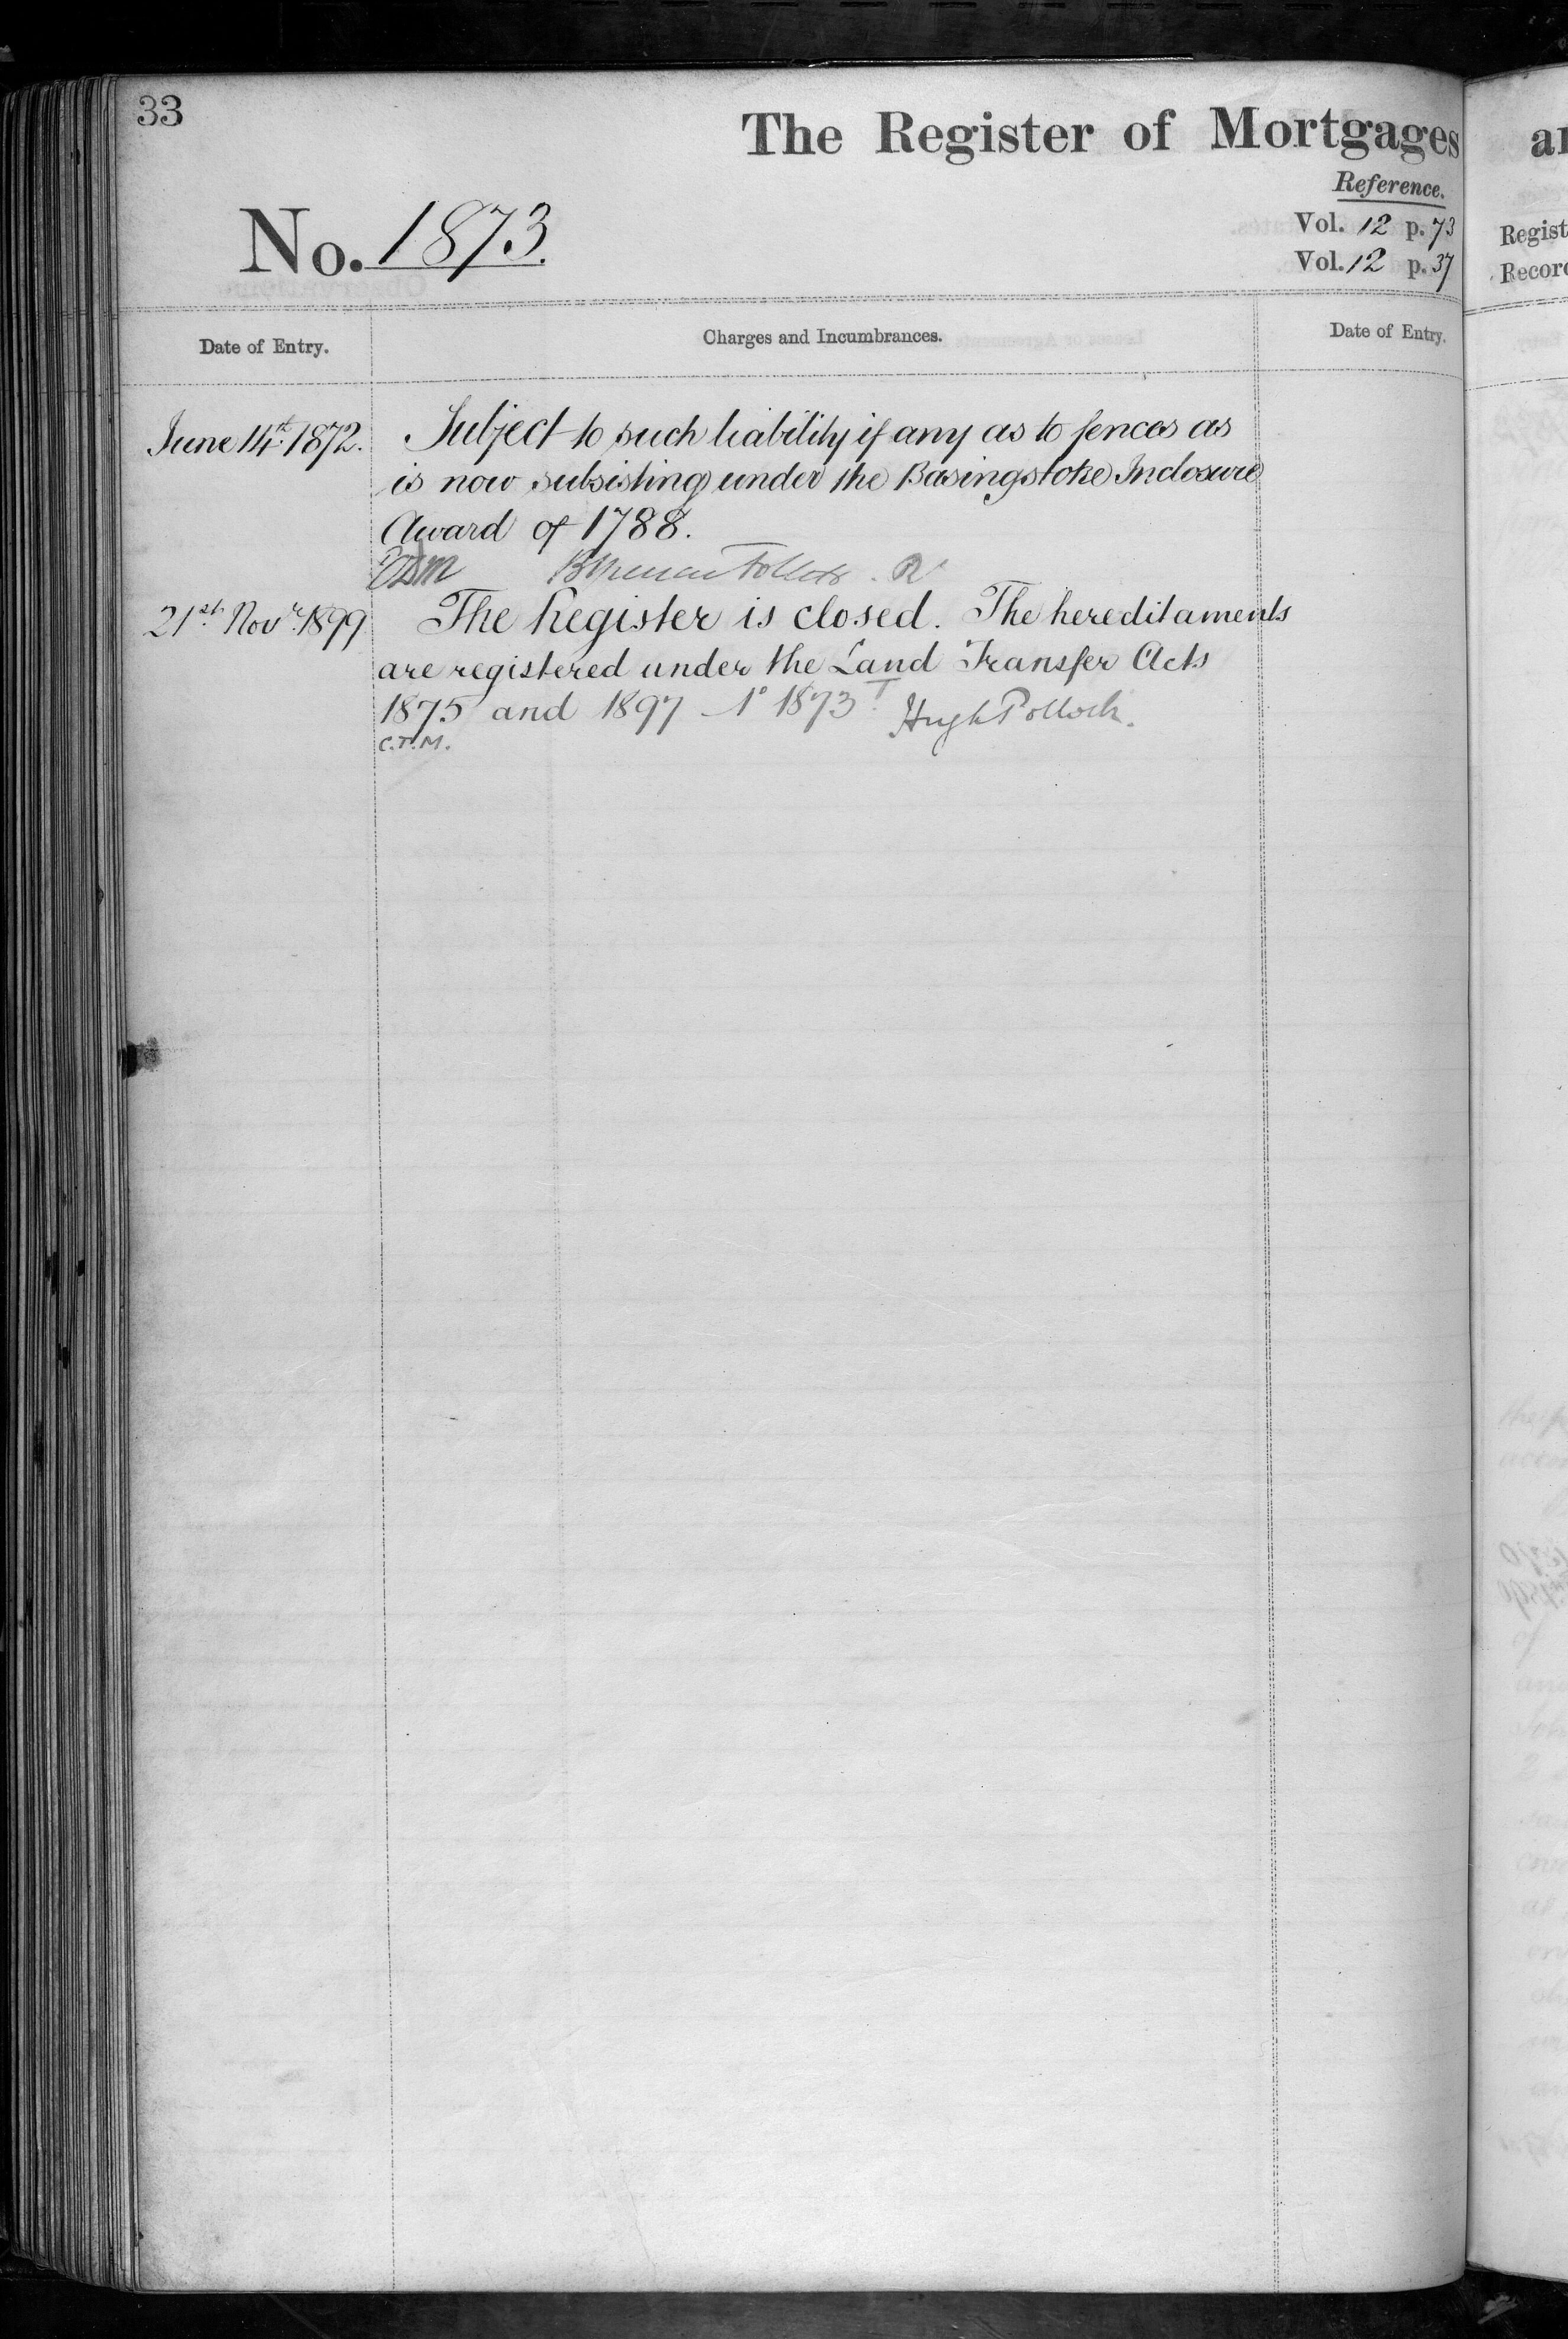 33
The Register of Mortgages
Reference.
No. 1873.
Vol. 12 p. 73
Vol. 12 p. 37
Date of Entry.
Charges and Incumbrances.
Date of Entry.
June 14th 1872.
Subject to such liability if any as to fences as
is now subsisting under the Basingstoke Inclosure
Award of 1788.
Follett. R
21st Novr 1899
The Register is closed. The hereditaments
are registered under the Land Transfer Acts
1875 and 1897 No 1873T. Hugh Pollock.
C.T.M.
Regist
Record